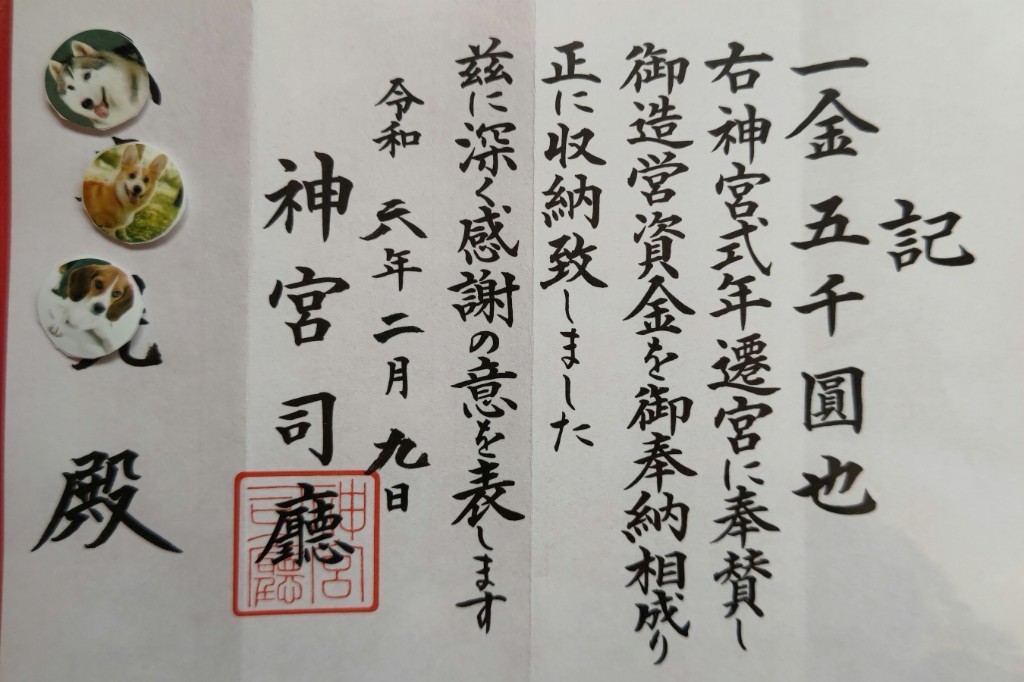 記
一金五千圓也
右神宮式年遷宮に奉賛し
御造営資金を御奉納相成り
正に収納致しました
茲に深く感謝の意を表します
令和 六年二月九日
神宮司廳
神宮司廳
殿